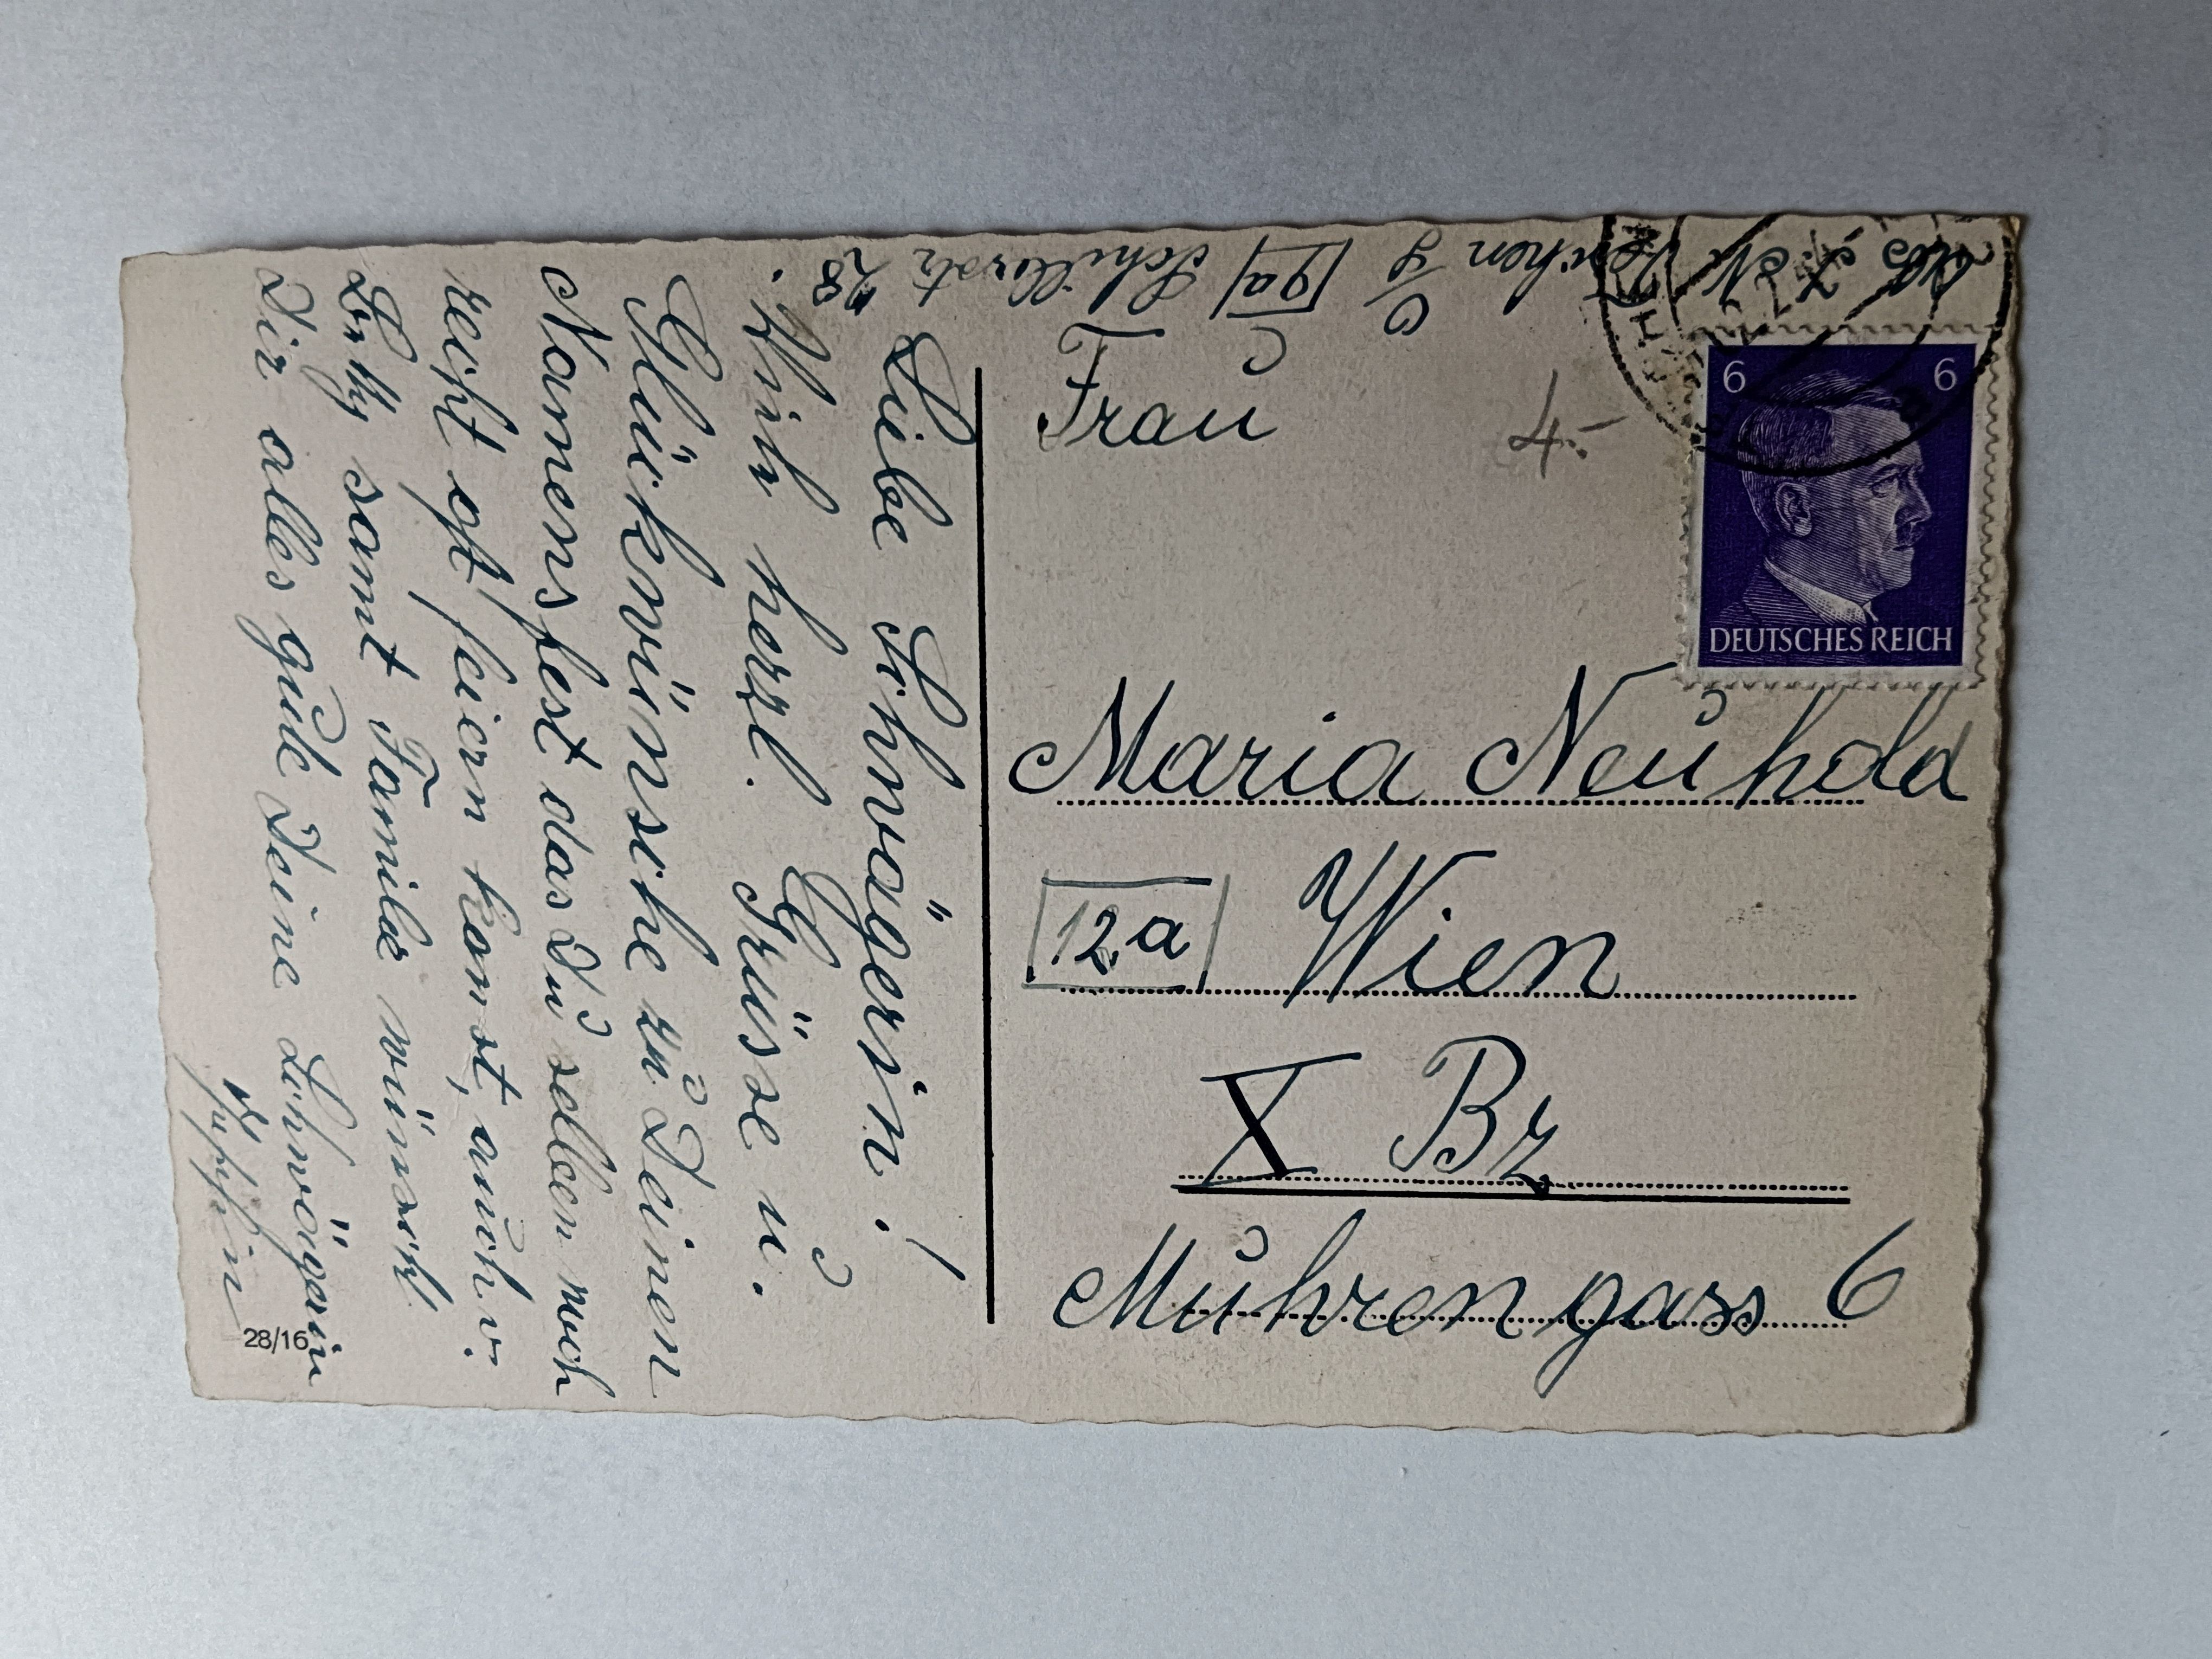 Liebe Schwägerin!
Wüh herzl. Grüsse u.
Glückwünsche zu Deinen
Namensfest das Du sollen noch
recht oft feiern kannst, auch v.
samt Familie wünscht
Dir alles gute Deine Schwägerin
28/16
Schillerstr 28.
Frau
4.-
6 6
DEUTSCHES REICH
Maria Neuhold
12a Wien
X Bz
Muhrengass 6